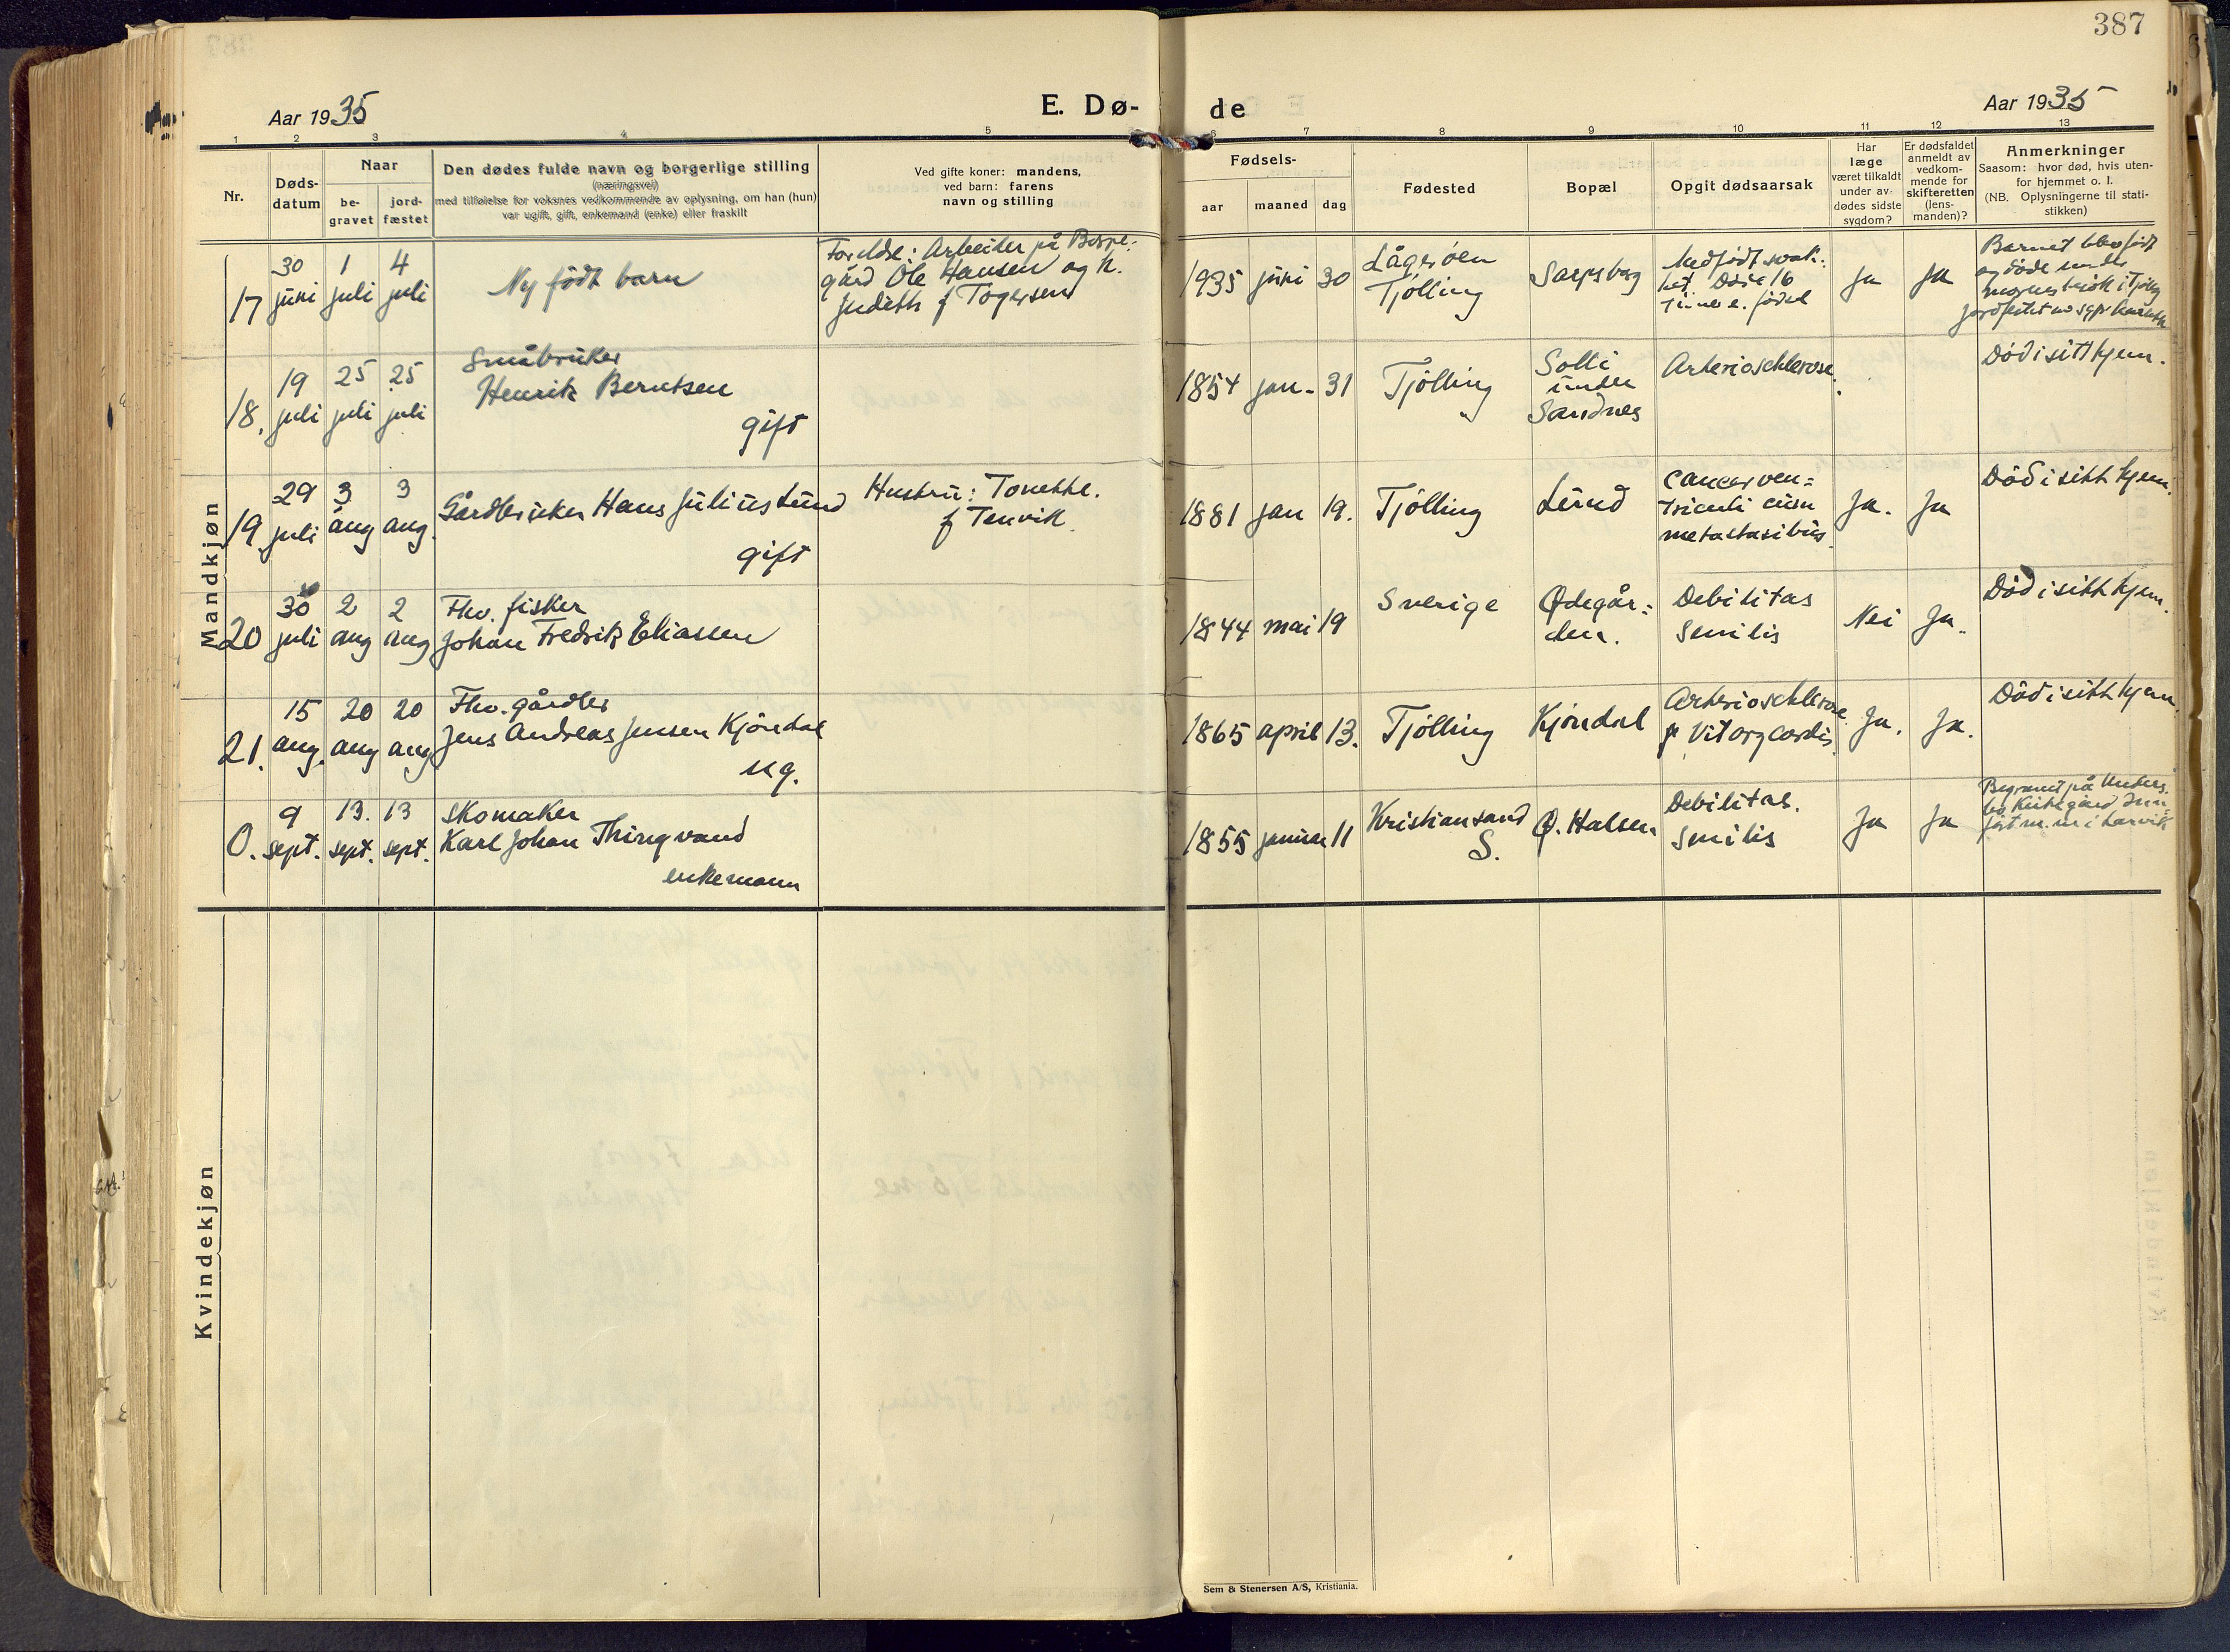 387
Aar 1935
E. Dø-
de
Aar 1935
1 2 3 4 5 6 7 8 9 10 11 12 13
Nr.
Døds-
datum
Naar
be-
gravet
jord-
fæstet
Den dødes fulde navn og borgerlige stilling
(næringsvei)
med tilføielse for voksnes vedkommende av oplysning, om han (hun)
var ugift, gift, enkemand (enke) eller fraskilt
Ved gifte koner: mandens,
ved barn: farens
navn og stilling
Fødsels-
aar
maaned
dag
Fødested
Bopæl
Opgit dødsaarsak
Har
læge
været tilkaldt
under av-
dødes sidste
sygdom?
Er dødsfaldet
anmeldt av
vedkom-
mende for
skifteretten
(lens-
manden)?
Anmerkninger
Saasom: hvor død, hvis uten-
for hjemmet o. l.
(NB. Oplysningerne til stati-
stikken)
Mandkjøn
17
30
juni
1
juli
4
juli
Ny født barn
Foreldre: Arbeider på
gård Ole Hansen og h.
Judith f Togersen
1935 juni 30
Lågerøen
Tjølling
Sarpsborg
Medfødt svak-
het. Døde 16
e. fødsel
Ja
Ja
Barnet blev født
og døde under
besøk i Tjølling
18.
19
juli
25
juli
25
juli
Småbruker
Henrik Berntsen
gift
1854 jan- 31
Tjølling
Solti
under
Sandnes
Arterioschlerose.
Död i sitt hjem.
19
29
juli
3
aug
3
aug.
Gårdbruker Hans Julius Lund
gift
Hustru: Tonette.
f Tenvik.
1881 jan 19.
Tjølling
Lund
Cancer ven=
triculi cum
metastasibus.
Ja.
Ja
Död i sitt hjem.
20
30
juli
2
aug
2
aug
Fhv. fisker
Johan Fredrik Eliassen
1844 mai 19
Sverige
Ødegår=
den.
Debilitas
Senilis
Nei
Ja.
Död i sitt hjem.
21.
15
aug.
20
aug
20
aug
Fhv. gårdbr
Jens Andreas Jensen Kjøndal
ug.
1865 april 13.
Tjølling
Kjøndal
Arterioschlerose
& Vit org cordis.
Ja.
Ja.
Död i sitt hjem.
0.
9
sept.
13.
sept.
13
sept.
Skomaker
Karl Johan Thingvand
enkemann
1855 januar 11
Kristiansand
S.
Ø. Halsen
Debilitas.
Senilis
Ja
Ja
Begravet på Unders-
bo Kirkegård
ført m. nr i Larvik
Kvindekjøn
Sem & Stenersen A/S, Kristiania.